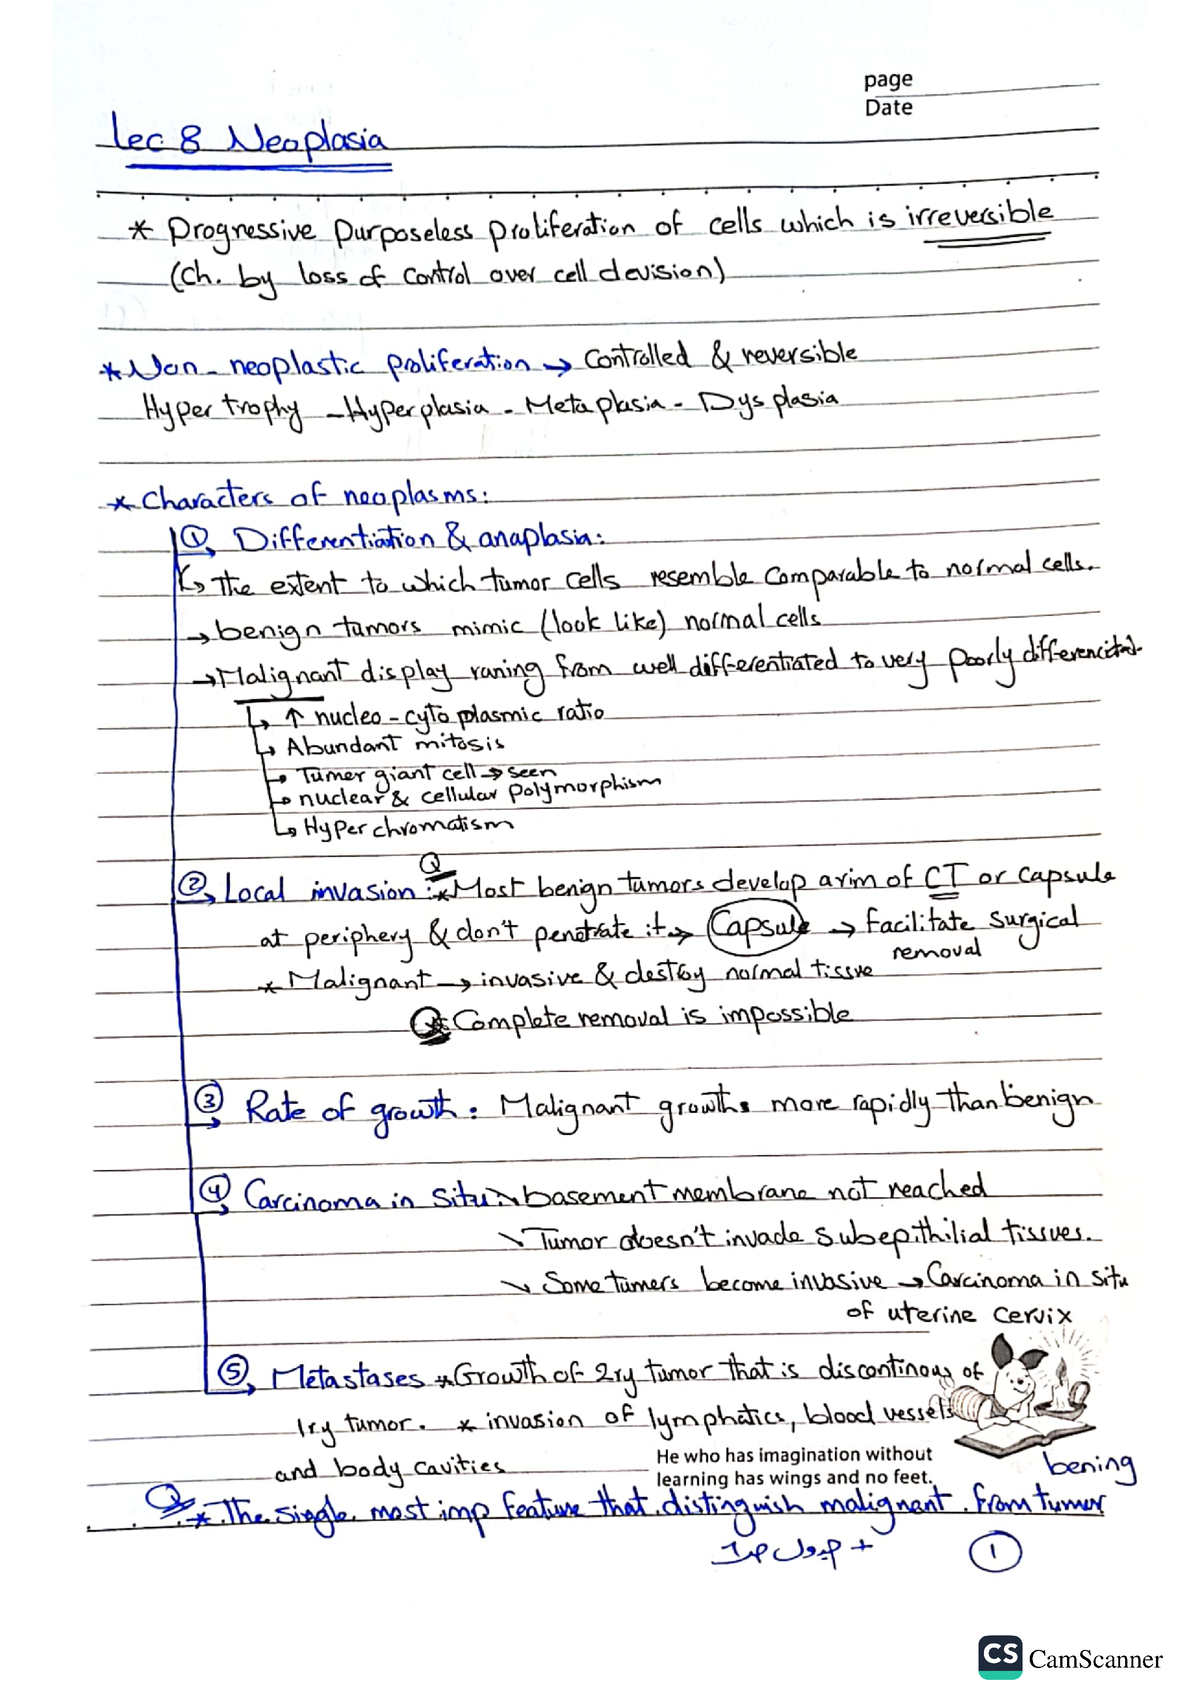 page
Date
Lec 8 Neoplasia
* Progressive Purposeless proliferation of cells which is irreversible
(Ch. by loss of control over cell devision)
* Non-neoplastic proliferation → Controlled & reversible
Hypertrophy - Hyperplasia - Metaplasia - Dysplasia
* Characters of neoplasms:
① Differentiation & anaplasia:
↳ the extent to which tumor cells resemble Comparable to normal cells.
→ benign tumors mimic (look like) normal cells
→ Malignant display raning from well differentiated to very poorly differencited.
↳ ↑ nucleo-cytoplasmic ratio
↳ Abundant mitosis
↳ Tumer giant cell → seen
↳ nuclear & cellular polymorphism
↳ Hyperchromatism
Q
② Local invasion: * Most benign tumors develop a rim of CT or capsule
at periphery & don't penetrate it → Capsule → Facilitate surgical
removal
* Malignant → invasive & destroy normal tissue
Q * Complete removal is impossible
③ Rate of growth: Malignant growths more rapidly than benign
④ Carcinoma in situ ↘ basement membrane not reached
↘ Tumor doesn't invade subepithilial tissues.
↘ Some tumers become invasive → Carcinoma in situ
of uterine cervix
⑤ Metastases * Growth of 2ry tumor that is discontinous of
1ry tumor. * invasion of lymphatics, blood vessels
and body cavities
He who has imagination without
learning has wings and no feet.
bening
Q * The single most imp feature that distinguish malignant from tumer
+ جدول صـ
1
CS CamScanner